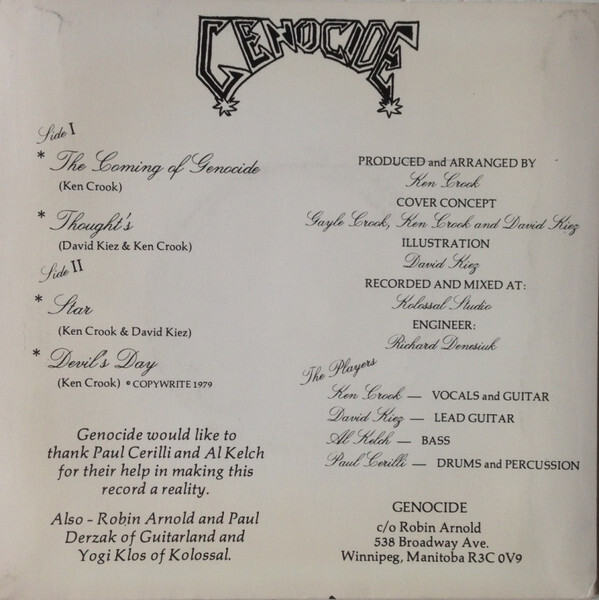 GENOCIDE
Side I
* The Coming of Genocide
(Ken Crook)
* Thought's
(David Kiez & Ken Crook)
Side II
* Star
(Ken Crook & David Kiez)
* Devil's Day
(Ken Crook) © COPYWRITE 1979
Genocide would like to
thank Paul Cerilli and Al Kelch
for their help in making this
record a reality.
Also - Robin Arnold and Paul
Derzak of Guitarland and
Yogi Klos of Kolossal.
PRODUCED and ARRANGED BY
Ken Crook
COVER CONCEPT
Gayle Crook, Ken Crook and David Kiez
ILLUSTRATION
David Kiez
RECORDED AND MIXED AT:
Kolossal Studio
ENGINEER:
Richard Denesiuk
The Players
Ken Crook — VOCALS and GUITAR
David Kiez — LEAD GUITAR
Al Kelch — BASS
Paul Cerilli — DRUMS and PERCUSSION
GENOCIDE
c/o Robin Arnold
538 Broadway Ave.
Winnipeg, Manitoba R3C 0V9